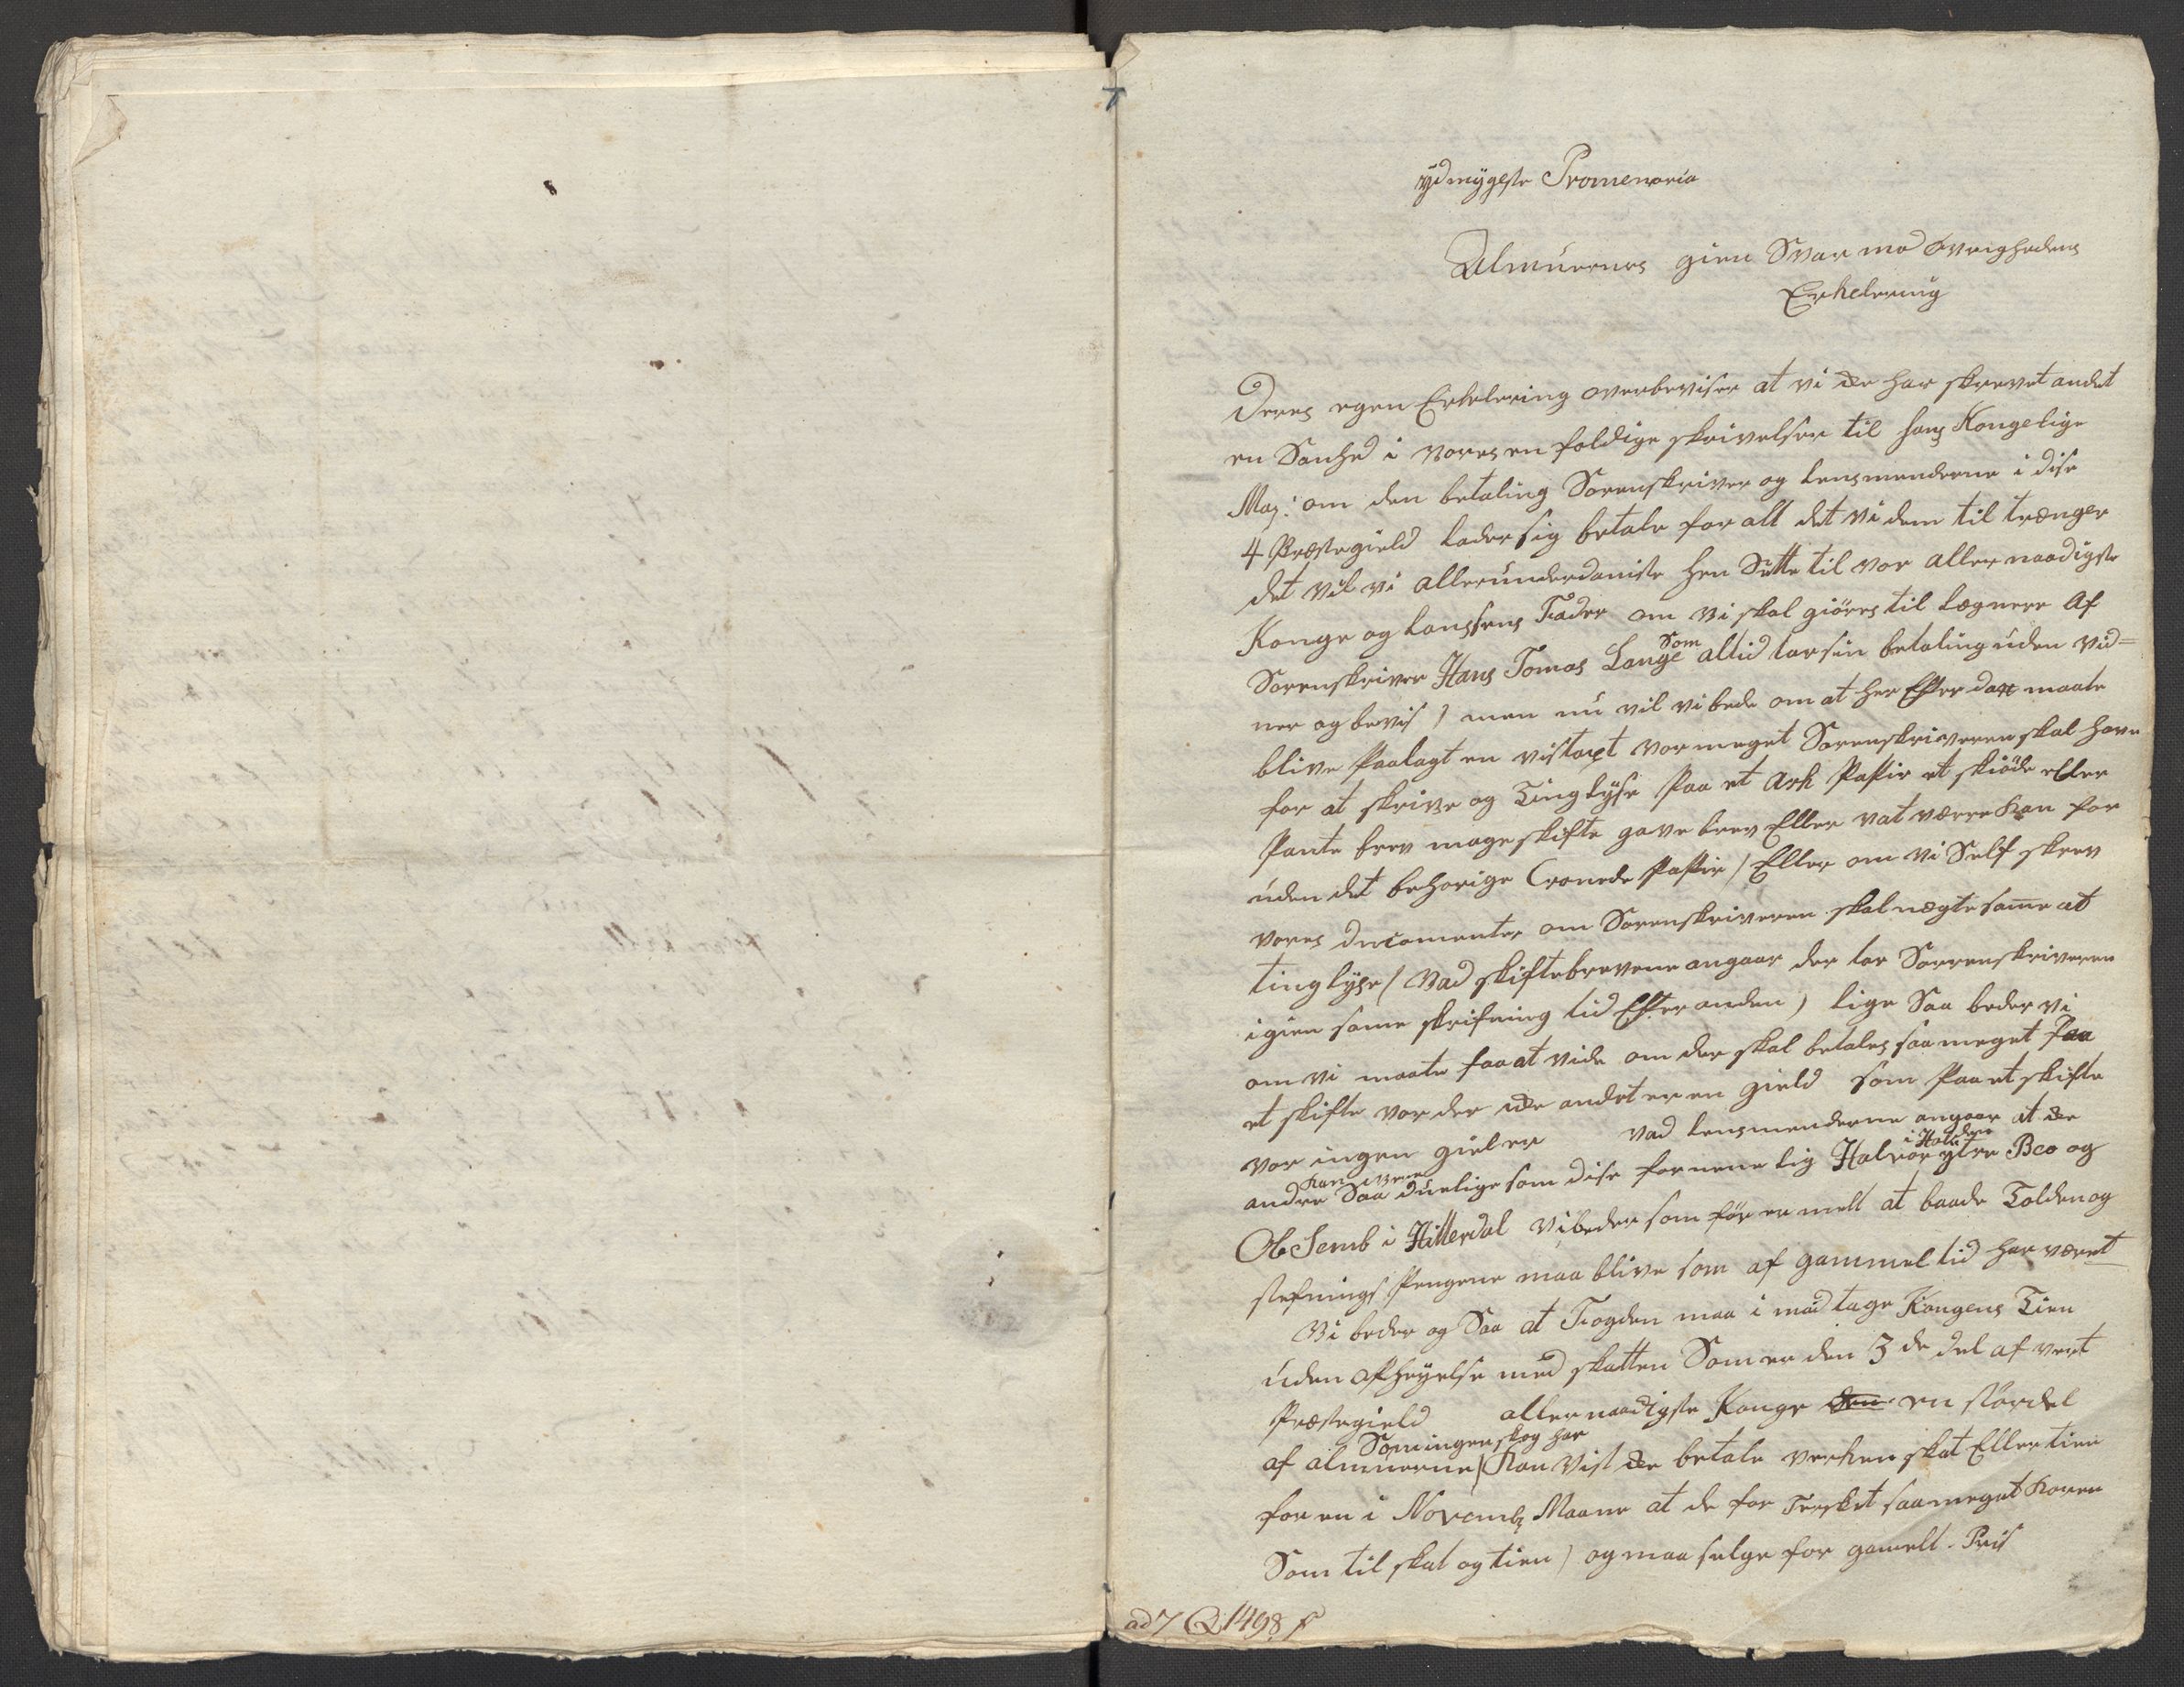 ÿdmygste Promemoria
Almuernes gien Svar mod Øvrighedens
Erkelering
Deres egen Erkelering overbeviser at vi icke har skrevet andet
en Sanhed i vores enfoldige skrivelser til hans Kongelige
Maj: om den betaling Sorenskriver og Lensmenderne i dise
4 Præstegield lader sig betale for alt det vi dem til trænger
det vil vi allerunderdaniste hen Sette til vor aller naadigste
Konge og Lanssens Fader om vi skal giöres til Løgnere Af
Sorenskriver Hans Tomas Lange Som altid tar sin betaling uden vid=
ner og bevis) men nu vil vi bede om at her Efter dags maate
blive Paalagt en vis taxt vor meget Sorenskriveren skal have
for at skrive og Tinglÿse Paa et Ark Papir et skiöde eller
Pante brev mageskifte gave brev Eller vat være kan for
uden det behorige Cronede Papir / Eller om vi Self skrev
vores documenter om Sorenskriveren skal negte same at
tinglÿse / Vad skiftebrevene angaar der tar Sorrenskriveren
igien same skrifning tid Efter anden) lige Saa beder vi
om vi maate faa at vide om der skal betales saa meget faa
et skifte vor der icke andet er en gield som Paa et skifte
vor ingen giel er vad Lensmenderne angaar at icke
andre kan være Saa duelige som dise fornemelig Halvor ytre Bøe i Hatudden og
Ole Semb i Hitterdal Vi beder som før er melt at baade Tolden og
stefnings Pengene maa blive som af gammel tid har været
Vi beder og Saa at Fogden maa i mod tage Kongens Tien
uden Ophøyelse med skatten Som er den 3de del af vert
Præstegield aller naadigste Konge den en stordel
af almuerne / Som ingen skog har Kan vist icke betale verken skat Eller tien
for en i Novemb Maane at de for Tersket saa meget Koren
Som til skat og tien) og maa selge for gamelt Pris
ad 7 Q 1498